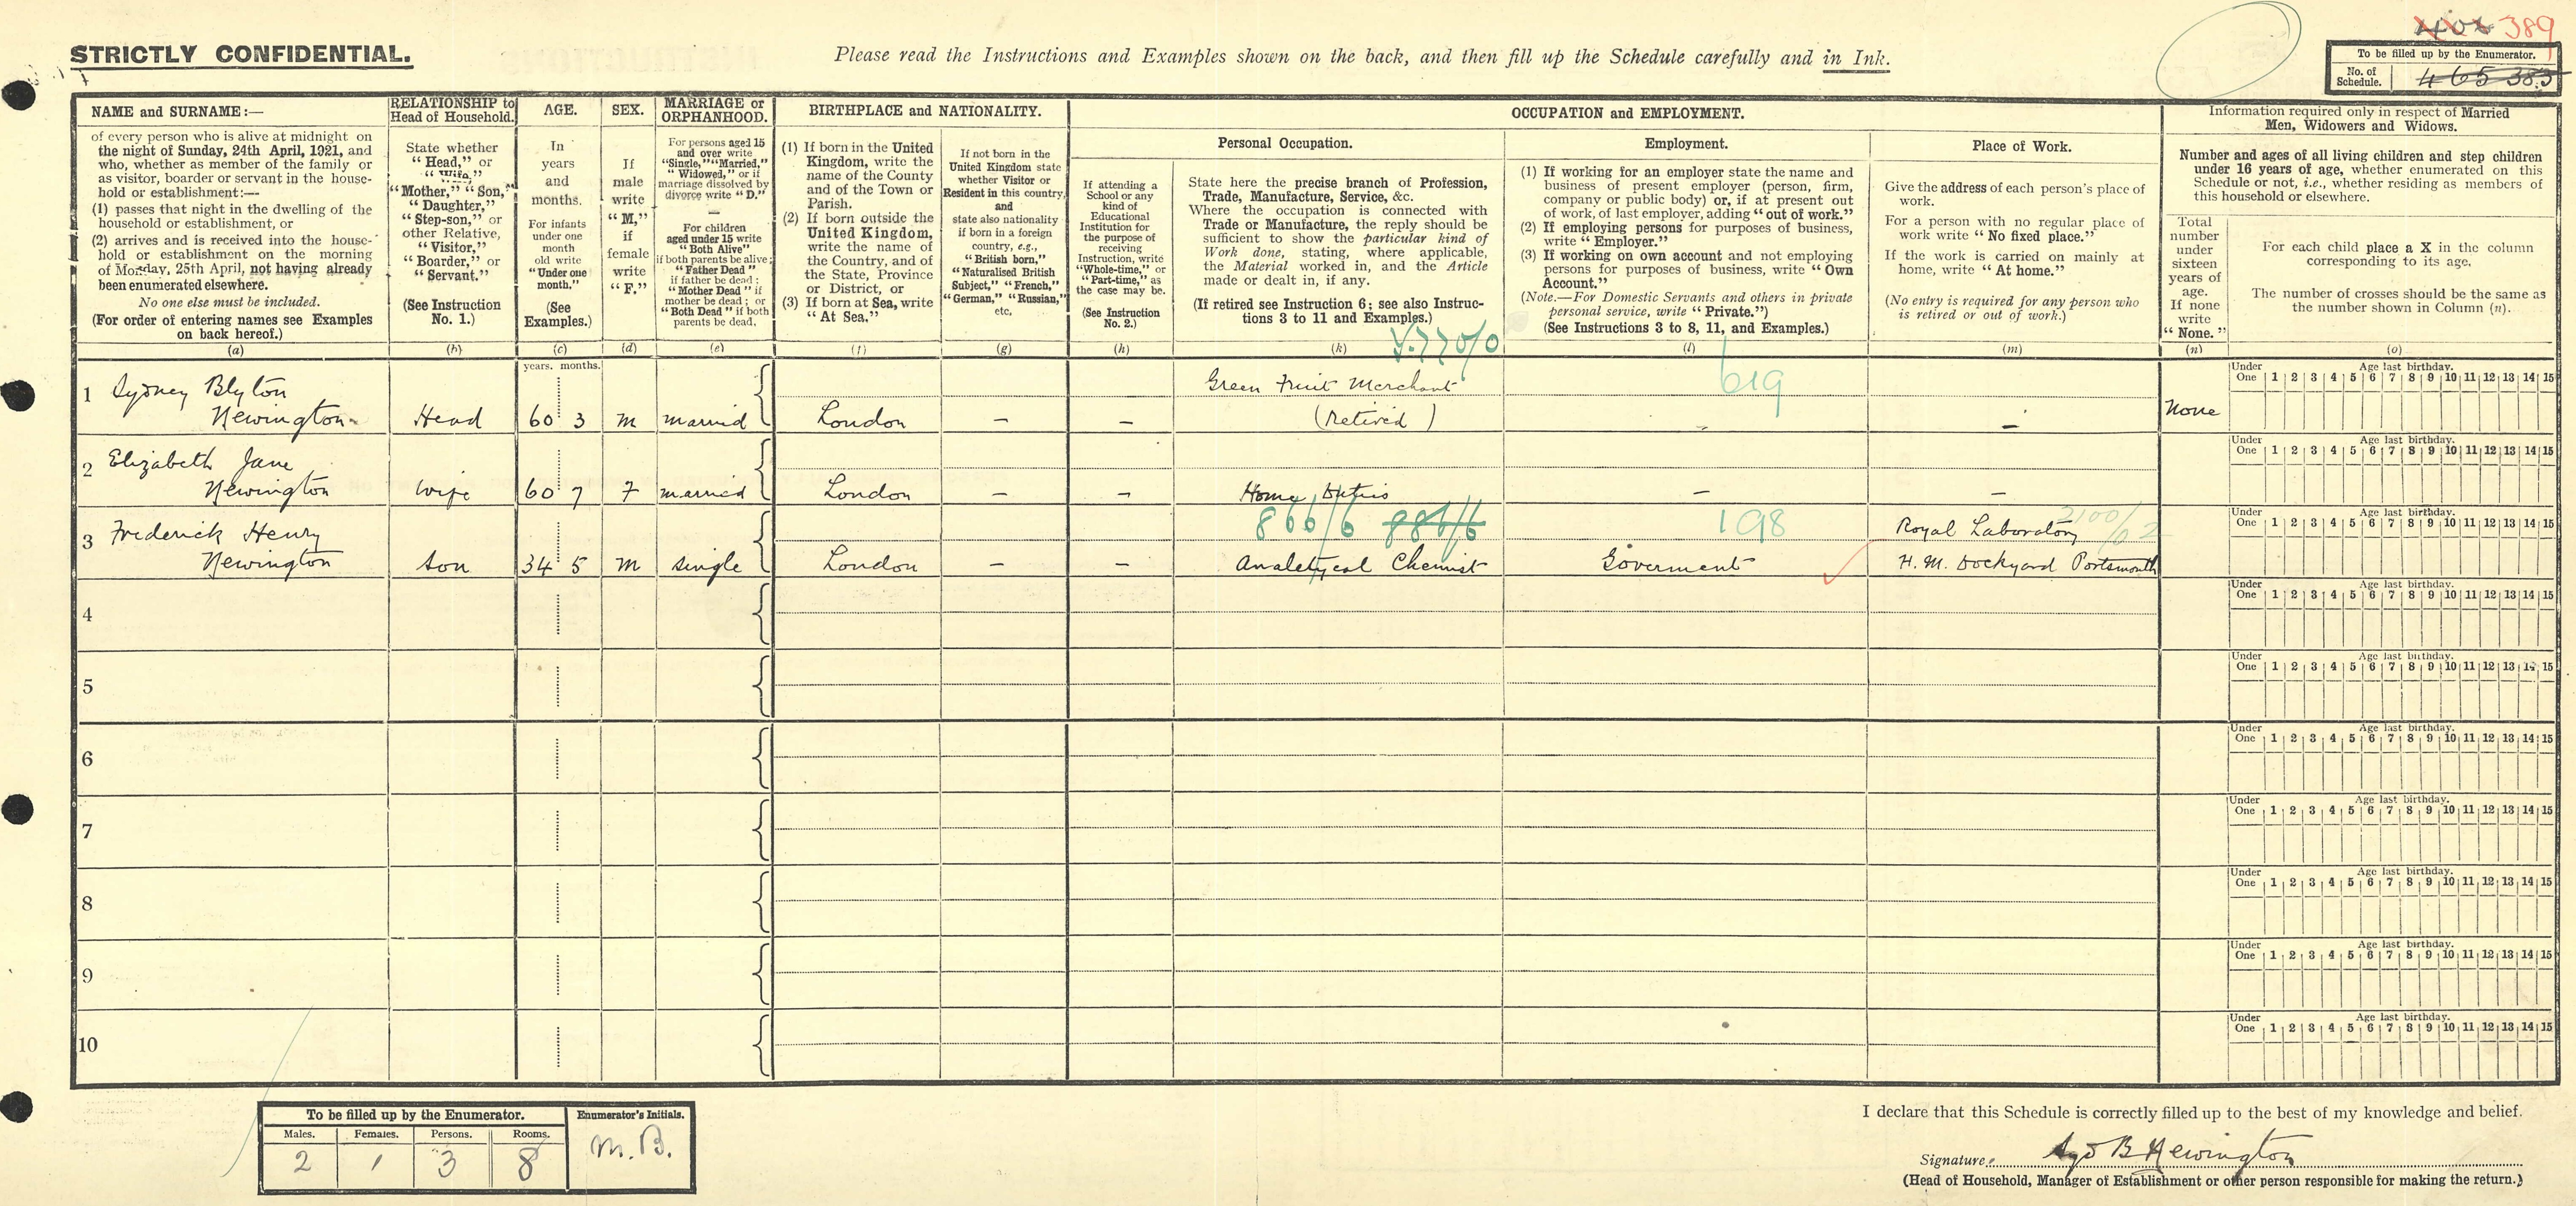 STRICTLY CONFIDENTIAL.
Please read the Instructions and Examples shown on the back, and then fill up the Schedule carefully and in Ink.
402 389
To be filled up by the Enumerator.
No. of Schedule. 465 383
NAME and SURNAME:—
of every person who is alive at midnight on
the night of Sunday, 24th April, 1921, and
who, whether as member of the family or
as visitor, boarder or servant in the house-
hold or establishment:—
(1) passes that night in the dwelling of the
household or establishment, or
(2) arrives and is received into the house-
hold or establishment on the morning
of Monday, 25th April, not having already
been enumerated elsewhere.
No one else must be included.
(For order of entering names see Examples
on back hereof.)
(a)
RELATIONSHIP to
Head of Household.
State whether
"Head," or
"Wife,"
"Mother," "Son,"
"Daughter,"
"Step-son," or
other Relative,
"Visitor,"
"Boarder," or
"Servant."
(See Instruction
No. 1.)
(b)
AGE.
In
years
and
months.
For infants
under one
month
old write
"Under one
month."
(See
Examples.)
(c)
SEX.
If
male
write
"M,"
if
female
write
"F."
(d)
MARRIAGE or
ORPHANHOOD.
For persons aged 15
and over write
"Single," "Married,"
"Widowed," or if
marriage dissolved by
divorce write "D."
—
For children
aged under 15 write
"Both Alive"
if both parents be alive;
"Father Dead"
if father be dead;
"Mother Dead" if
mother be dead; or
"Both Dead" if both
parents be dead.
(e)
BIRTHPLACE and NATIONALITY.
(1) If born in the United
Kingdom, write the
name of the County
and of the Town or
Parish.
(2) If born outside the
United Kingdom,
write the name of
the Country, and of
the State, Province
or District, or
(3) If born at Sea, write
"At Sea."
(f)
If not born in the
United Kingdom state
whether Visitor or
Resident in this country,
and
state also nationality
if born in a foreign
country, e.g.,
"British born,"
"Naturalised British
Subject," "French,"
"German," "Russian,"
etc.
(g)
OCCUPATION and EMPLOYMENT.
If attending a
School or any
kind of
Educational
Institution for
the purpose of
receiving
Instruction, write
"Whole-time," or
"Part-time," as
the case may be.
(See Instruction
No. 2.)
(h)
Personal Occupation.
State here the precise branch of Profession,
Trade, Manufacture, Service, &c.
Where the occupation is connected with
Trade or Manufacture, the reply should be
sufficient to show the particular kind of
Work done, stating, where applicable,
the Material worked in, and the Article
made or dealt in, if any.
(If retired see Instruction 6; see also Instruc-
tions 3 to 11 and Examples.)
(k)
Employment.
(1) If working for an employer state the name and
business of present employer (person, firm,
company or public body) or, if at present out
of work, of last employer, adding "out of work."
(2) If employing persons for purposes of business,
write "Employer."
(3) If working on own account and not employing
persons for purposes of business, write "Own
Account."
(Note.—For Domestic Servants and others in private
personal service, write "Private.")
(See Instructions 3 to 8, 11, and Examples.)
(l)
Place of Work.
Give the address of each person's place of
work.
For a person with no regular place of
work write "No fixed place."
If the work is carried on mainly at
home, write "At home."
(No entry is required for any person who
is retired or out of work.)
(m)
Information required only in respect of Married
Men, Widowers and Widows.
Number and ages of all living children and step children
under 16 years of age, whether enumerated on this
Schedule or not, i.e., whether residing as members of
this household or elsewhere.
Total
number
under
sixteen
years of
age.
If none
write
"None."
(n)
For each child place a X in the column
corresponding to its age.
The number of crosses should be the same as
the number shown in Column (n).
(o)
years. months.
770/0
619
1 Sydney Blyton
Newington Head 60 3 M married London — — Green Fruit Merchant
(Retired) — — None
Under One Age last birthday. 1 2 3 4 5 6 7 8 9 10 11 12 13 14 15
2 Elizabeth Jane
Newington Wife 60 7 F married London — — Home Duties — —
Under One Age last birthday. 1 2 3 4 5 6 7 8 9 10 11 12 13 14 15
866/6 886/6 198
3 Frederick Henry
Newington Son 34 5 M single London — — Analetycal Chemist Goverment Royal Laboratory
H.M. Dockyard Portsmouth
Under One Age last birthday. 1 2 3 4 5 6 7 8 9 10 11 12 13 14 15
4
Under One Age last birthday. 1 2 3 4 5 6 7 8 9 10 11 12 13 14 15
5
Under One Age last birthday. 1 2 3 4 5 6 7 8 9 10 11 12 13 14 15
6
Under One Age last birthday. 1 2 3 4 5 6 7 8 9 10 11 12 13 14 15
7
Under One Age last birthday. 1 2 3 4 5 6 7 8 9 10 11 12 13 14 15
8
Under One Age last birthday. 1 2 3 4 5 6 7 8 9 10 11 12 13 14 15
9
Under One Age last birthday. 1 2 3 4 5 6 7 8 9 10 11 12 13 14 15
10
Under One Age last birthday. 1 2 3 4 5 6 7 8 9 10 11 12 13 14 15
To be filled up by the Enumerator.
Males. Females. Persons. Rooms.
2 1 3 8
Enumerator's Initials.
M.B.
I declare that this Schedule is correctly filled up to the best of my knowledge and belief.
Signature Syd B Newington
(Head of Household, Manager of Establishment or other person responsible for making the return.)